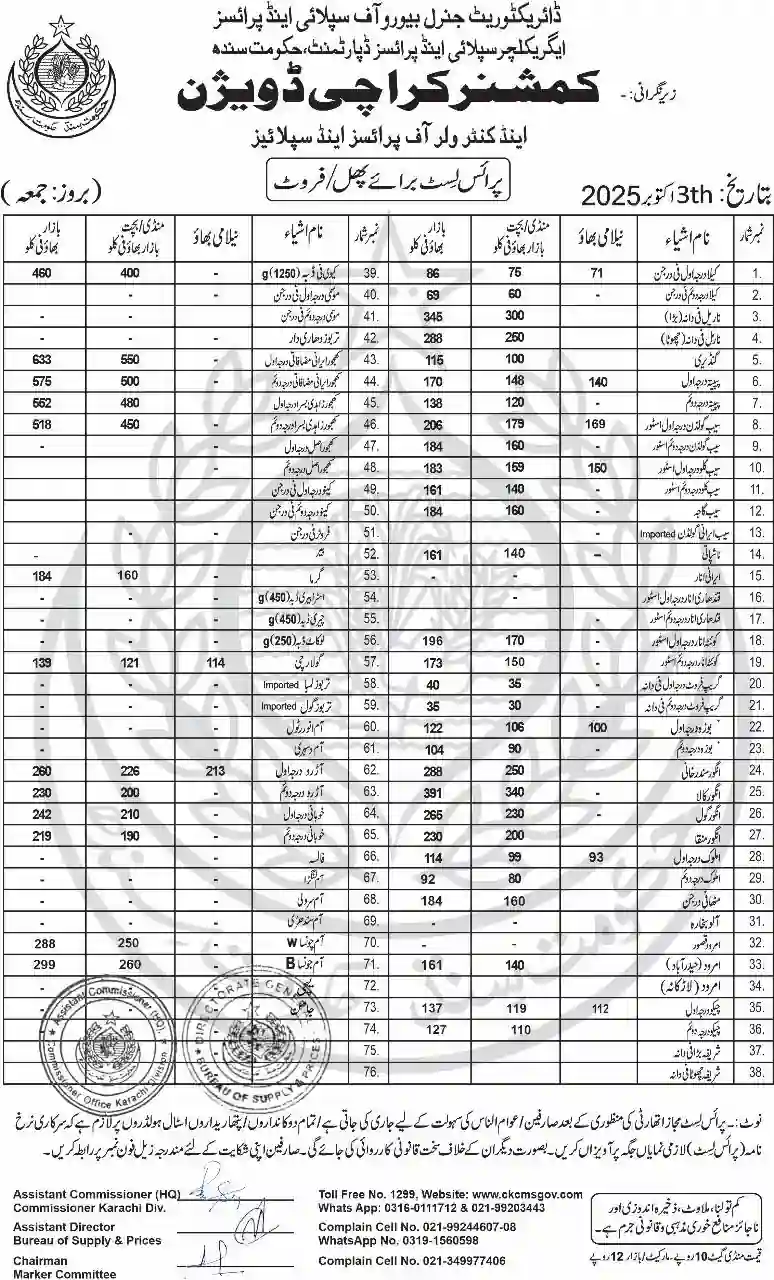 ڈائریکٹوریٹ جنرل بیورو آف سپلائی اینڈ پرائسز
ایگریکلچر سپلائی اینڈ پرائسز ڈپارٹمنٹ، حکومت سندھ
زیر نگرانی: -
کمشنر کراچی ڈویژن
اینڈ کنٹرولر آف پرائسز اینڈ سپلائیز
بتاریخ: 3th اکتوبر 2025
پرائس لسٹ برائے پھل/فروٹ
(بروز: جمعہ)
نمبر شمار نام اشیاء نیلامی بھاؤ منڈی/بچت بازار بھاؤ فی کلو بازار بھاؤ فی کلو
1. کیلا درجہ اول فی درجن 71 75 86
2. کیلا درجہ دوئم فی درجن - 60 69
3. ناریل فی دانہ (بڑا) 300 345
4. ناریل فی دانہ (چھوٹا) 250 288
5. گنڈیری 100 115
6. پپیتہ درجہ اول 140 148 170
7. پپیتہ درجہ دوئم - 120 138
8. سیب گولڈن درجہ اول اسٹور 169 179 206
9. سیب گولڈن درجہ دوئم اسٹور - 160 184
10. سیب گلو درجہ اول اسٹور 150 159 183
11. سیب گلو درجہ دوئم اسٹور - 140 161
12. سیب گاجہ - 160 184
13. سیب ایرانی گولڈن Imported -
14. ناشپاتی - 140 161
15. ایرانی انار - -
16. قندھاری انار درجہ اول اسٹور -
17. قندھاری انار درجہ دوئم اسٹور - -
18. کوئٹہ انار درجہ اول اسٹور 170 196
19. کوئٹہ انار درجہ دوئم اسٹور - 150 173
20. گریپ فروٹ درجہ اول فی دانہ - 35 40
21. گریپ فروٹ درجہ دوئم فی دانہ - 30 35
22. بوزہ درجہ اول 100 106 122
23. بوزہ درجہ دوئم - 90 104
24. انگور سندرخانی 250 288
25. انگور کالا 340 391
26. انگور گول - 230 265
27. انگور منقا 200 230
28. املوک درجہ اول 93 99 114
29. املوک درجہ دوئم 80 92
30. مٹھا فی درجن 160 184
31. آلو بخارہ
32. امرود قصور - -
33. امرود (حیدرآباد) 140 161
34. امرود (لاڑکانہ)
35. چیکو درجہ اول 112 119 137
36. چیکو درجہ دوئم 110 127
37. شریفہ بڑا فی دانہ
38. شریفہ چھوٹا فی دانہ
نمبر شمار نام اشیاء نیلامی بھاؤ منڈی/بچت بازار بھاؤ فی کلو بازار بھاؤ فی کلو
39. کیوی فی ڈبہ (1250)g - 400 460
40. موسمی درجہ اول فی درجن - - -
41. موسمی درجہ دوئم فی درجن - -
42. تربوز دھاری دار - - -
43. کھجور ایرانی مضافاتی درجہ اول 550 633
44. کھجور ایرانی مضافاتی درجہ دوئم 500 575
45. کھجور زاہدی بسرا درجہ اول 480 552
46. کھجور زاہدی بسرا درجہ دوئم 450 518
47. کھجور اصل درجہ اول -
48. کھجور اصل درجہ دوئم -
49. کینو درجہ اول فی درجن
50. کینو درجہ دوئم فی درجن
51. فروٹر فی درجن - -
52. -
53. گرما - 160 184
54. اسٹرابیری ڈبہ (450)g - - -
55. چیری ڈبہ (450)g - -
56. لوکاٹ ڈبہ (250)g - - -
57. گولارچی 114 121 139
58. تربوز لمبا Imported - - -
59. تربوز گول Imported - - -
60. آم انور رٹول - - -
61. آم دسہری - -
62. آڑو درجہ اول 213 226 260
63. آڑو درجہ دوئم - 200 230
64. خوبانی درجہ اول - 210 242
65. خوبانی درجہ دوئم - 190 219
66. فالسہ - - -
67. آم لنگڑا - - -
68. آم سرولی - - -
69. آم سندھڑی - - -
70. آم چونسا W - 250 288
71. آم چونسا B - 260 299
72. -
73. جامن
74.
75.
76.
Assistant Commissioner (HQ), Commissioner Office Karachi Division
DIRECTORATE GENERAL BUREAU OF SUPPLY & PRICES
نوٹ:۔ پرائس لسٹ مجاز اتھارٹی کی منظوری کے بعد صارفین/عوام الناس کی سہولت کے لیے جاری کی جاتی ہے/تمام دوکانداروں/پتھاریداروں اسٹال ہولڈروں پر لازم ہے کہ سرکاری نرخ
نامہ (پرائس لسٹ) لازمی نمایاں جگہ پر آویزاں کریں۔ بصورت دیگر ان کے خلاف سخت قانونی کارروائی کی جائے گی۔ صارفین اپنی شکایت کے لئے مندرجہ زیل فون نمبر پر رابطہ کریں۔
Assistant Commissioner (HQ)
Commissioner Karachi Div.
Assistant Director
Bureau of Supply & Prices
Chairman
Marker Committee
Toll Free No. 1299, Website: www.ckcmsgov.com
Whats App: 0316-0111712 & 021-99203443
Complain Cell No. 021-99244607-08
WhatsApp No. 0319-1560598
Complain Cell No. 021-349977406
کم تولنا، ملاوٹ، ذخیرہ اندوزی اور
ناجائز منافع خوری مذہبی و قانونی جرم ہے۔
قیمت منڈی گیٹ 10 روپے۔ مارکیٹ/بازار 12 روپے